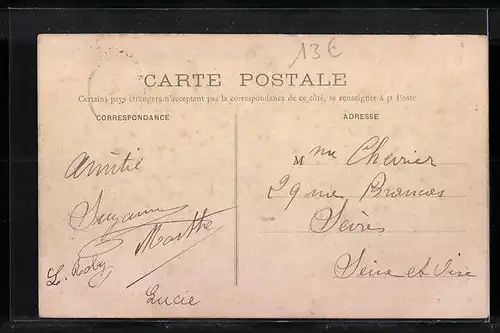 13€
CARTE POSTALE
Certains pays étrangers n'acceptant pas la correspondance de ce côté, se renseigner à la Poste
CORRESPONDANCE
ADRESSE
Amitié
Suzanne
Marthe
L. Roby
Lucie
Mme Chevrier
29 rue Brancas
Sèvres
Seine et Oise